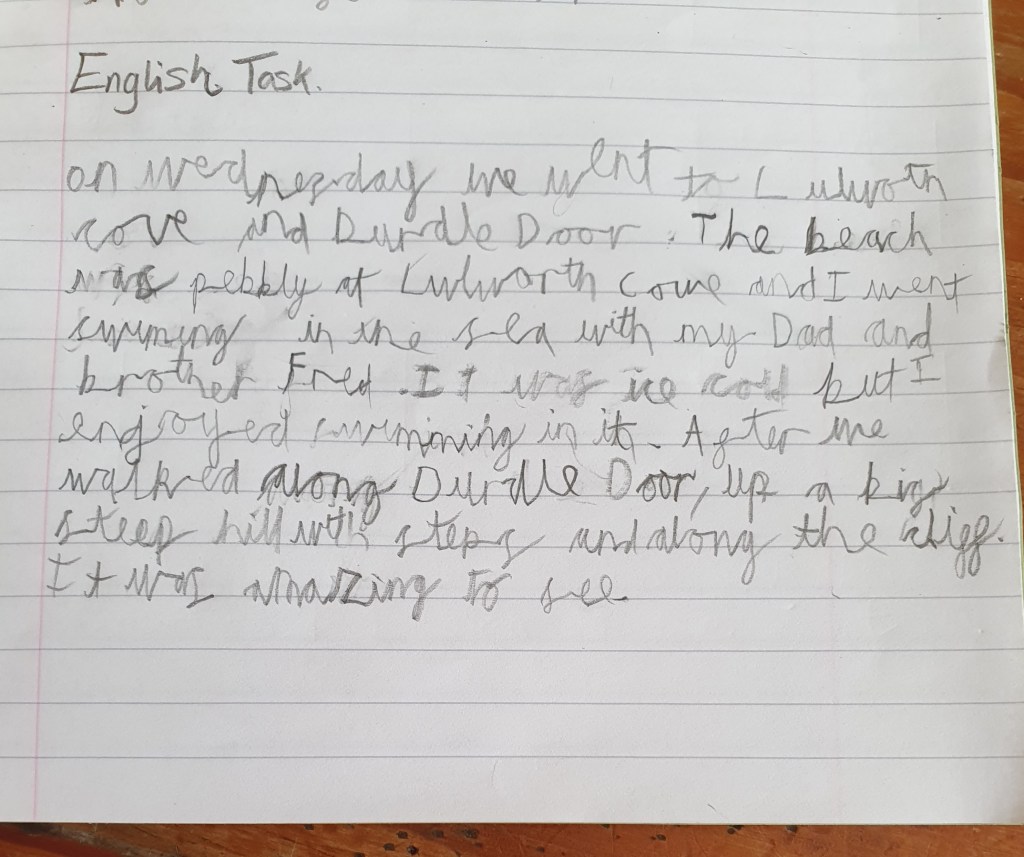 English Task.
on wednesday we went to Lulworth
cove and Durdle Door. The beach
was pebbly at Lulworth cove and I went
swimming in the sea with my Dad and
brother Fred. It was ice cold but I
enjoyed swimming in it. After we
walked along Durdle Door, up a big
steep hill with steps and along the cliff.
It was amazing to see